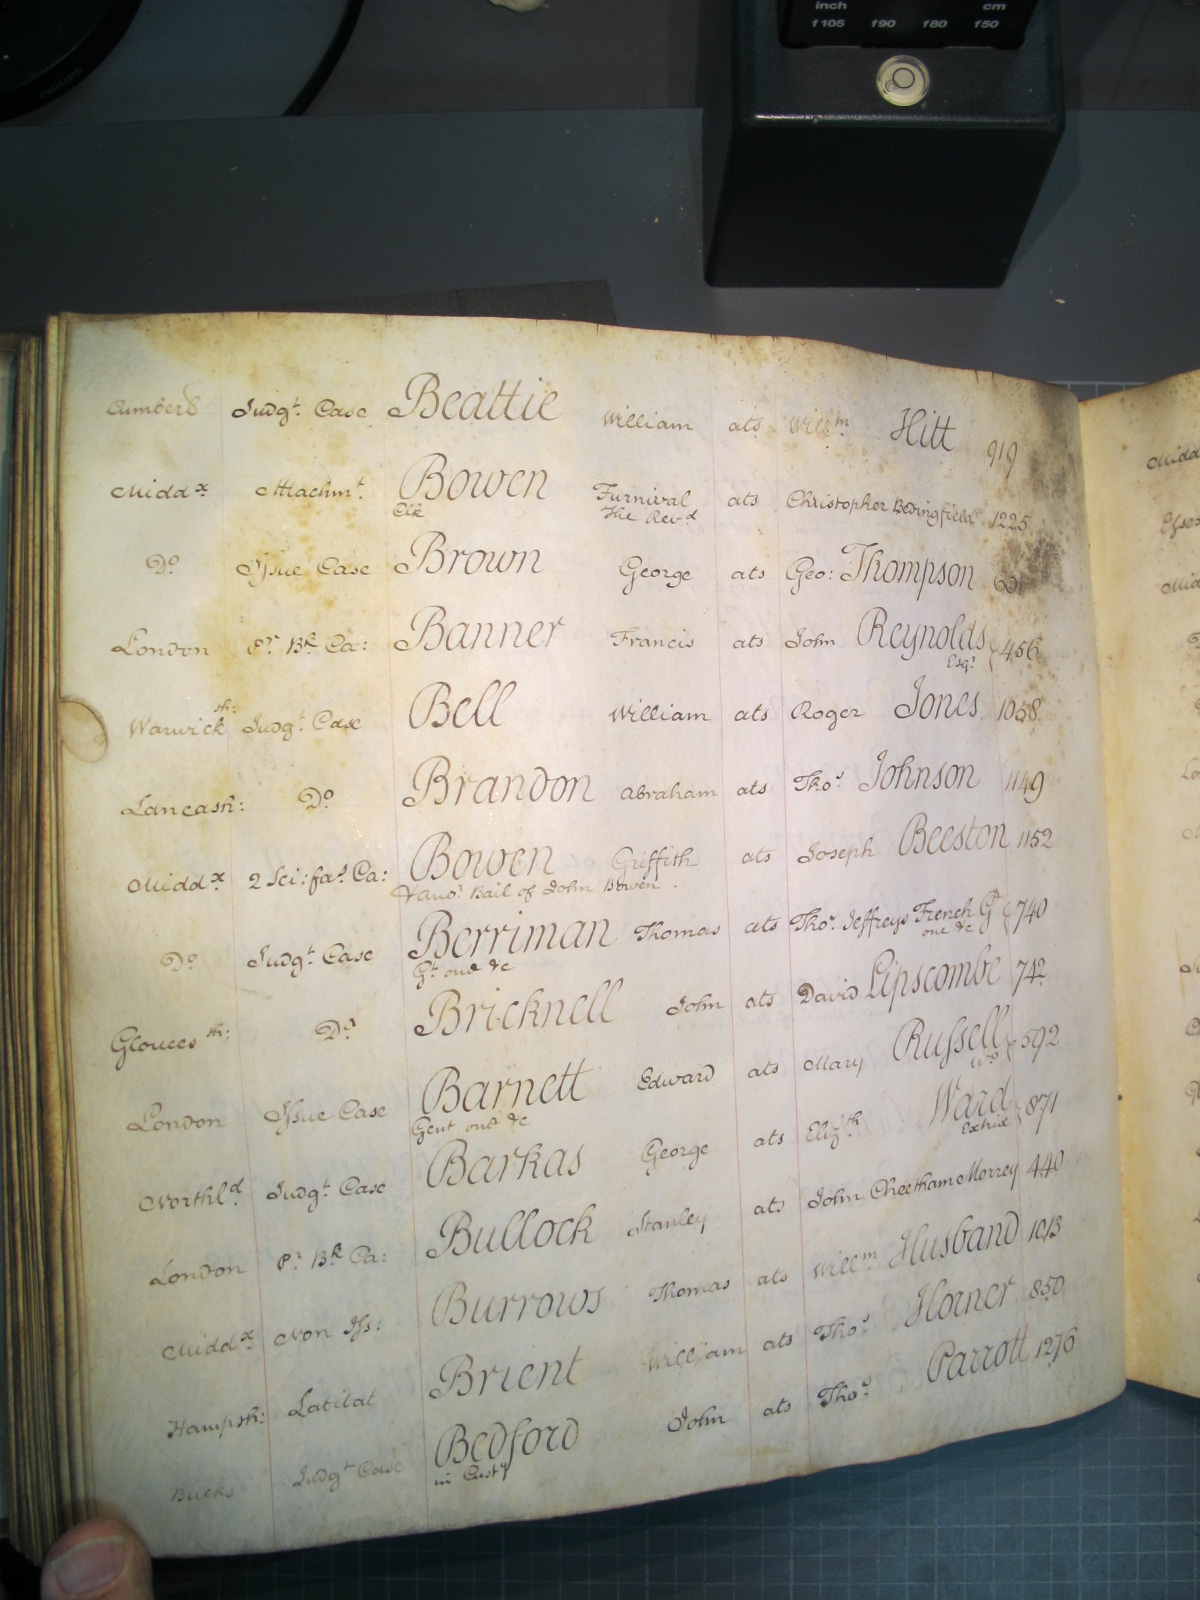 inch cm
f105 f90 f80 f50
PHILIPS
Cumberd Judgt. Case Beattie William ats Willm Hitt 919
Middx Attachmt. Bowen Furnival ats Christopher Bedingfield 1225
Clk The Revd
Do Issue Case Brown George ats Geo: Thompson
London Pr. Bk Ca: Banner Francis ats John Reynolds 456
Esqr
Warwicksh: Judgt. Case Bell William ats Roger Jones 1058
Lancash: Do Brandon Abraham ats Thos Johnson 1149
Middx 2 Sci: fas Ca: Bowen Griffith ats Joseph Beeston 1152
Bail of John Bowen
Do Judgt. Case Berriman Thomas ats Thos Jeffreys French Gt 740
Gt. one &c one &c
Gloucessh: Do Bricknell John ats David Lipscombe 742
London Issue Case Barnett Edward ats Mary Russell 592
Gent one &c Wo
Northld Judgt. Case Barkas George ats Elizth Ward 871
Extrix
London Pr. Bk Ca: Bullock Stanley ats John Cheetham Morrey 440
Middx Non Iss: Burrows Thomas ats Willm Husband 1013
Hampsh: Latitat Brient William ats Thos Horner 850
Bucks Judgt Case Bedford John ats Thos Parrott 1276
in Custy